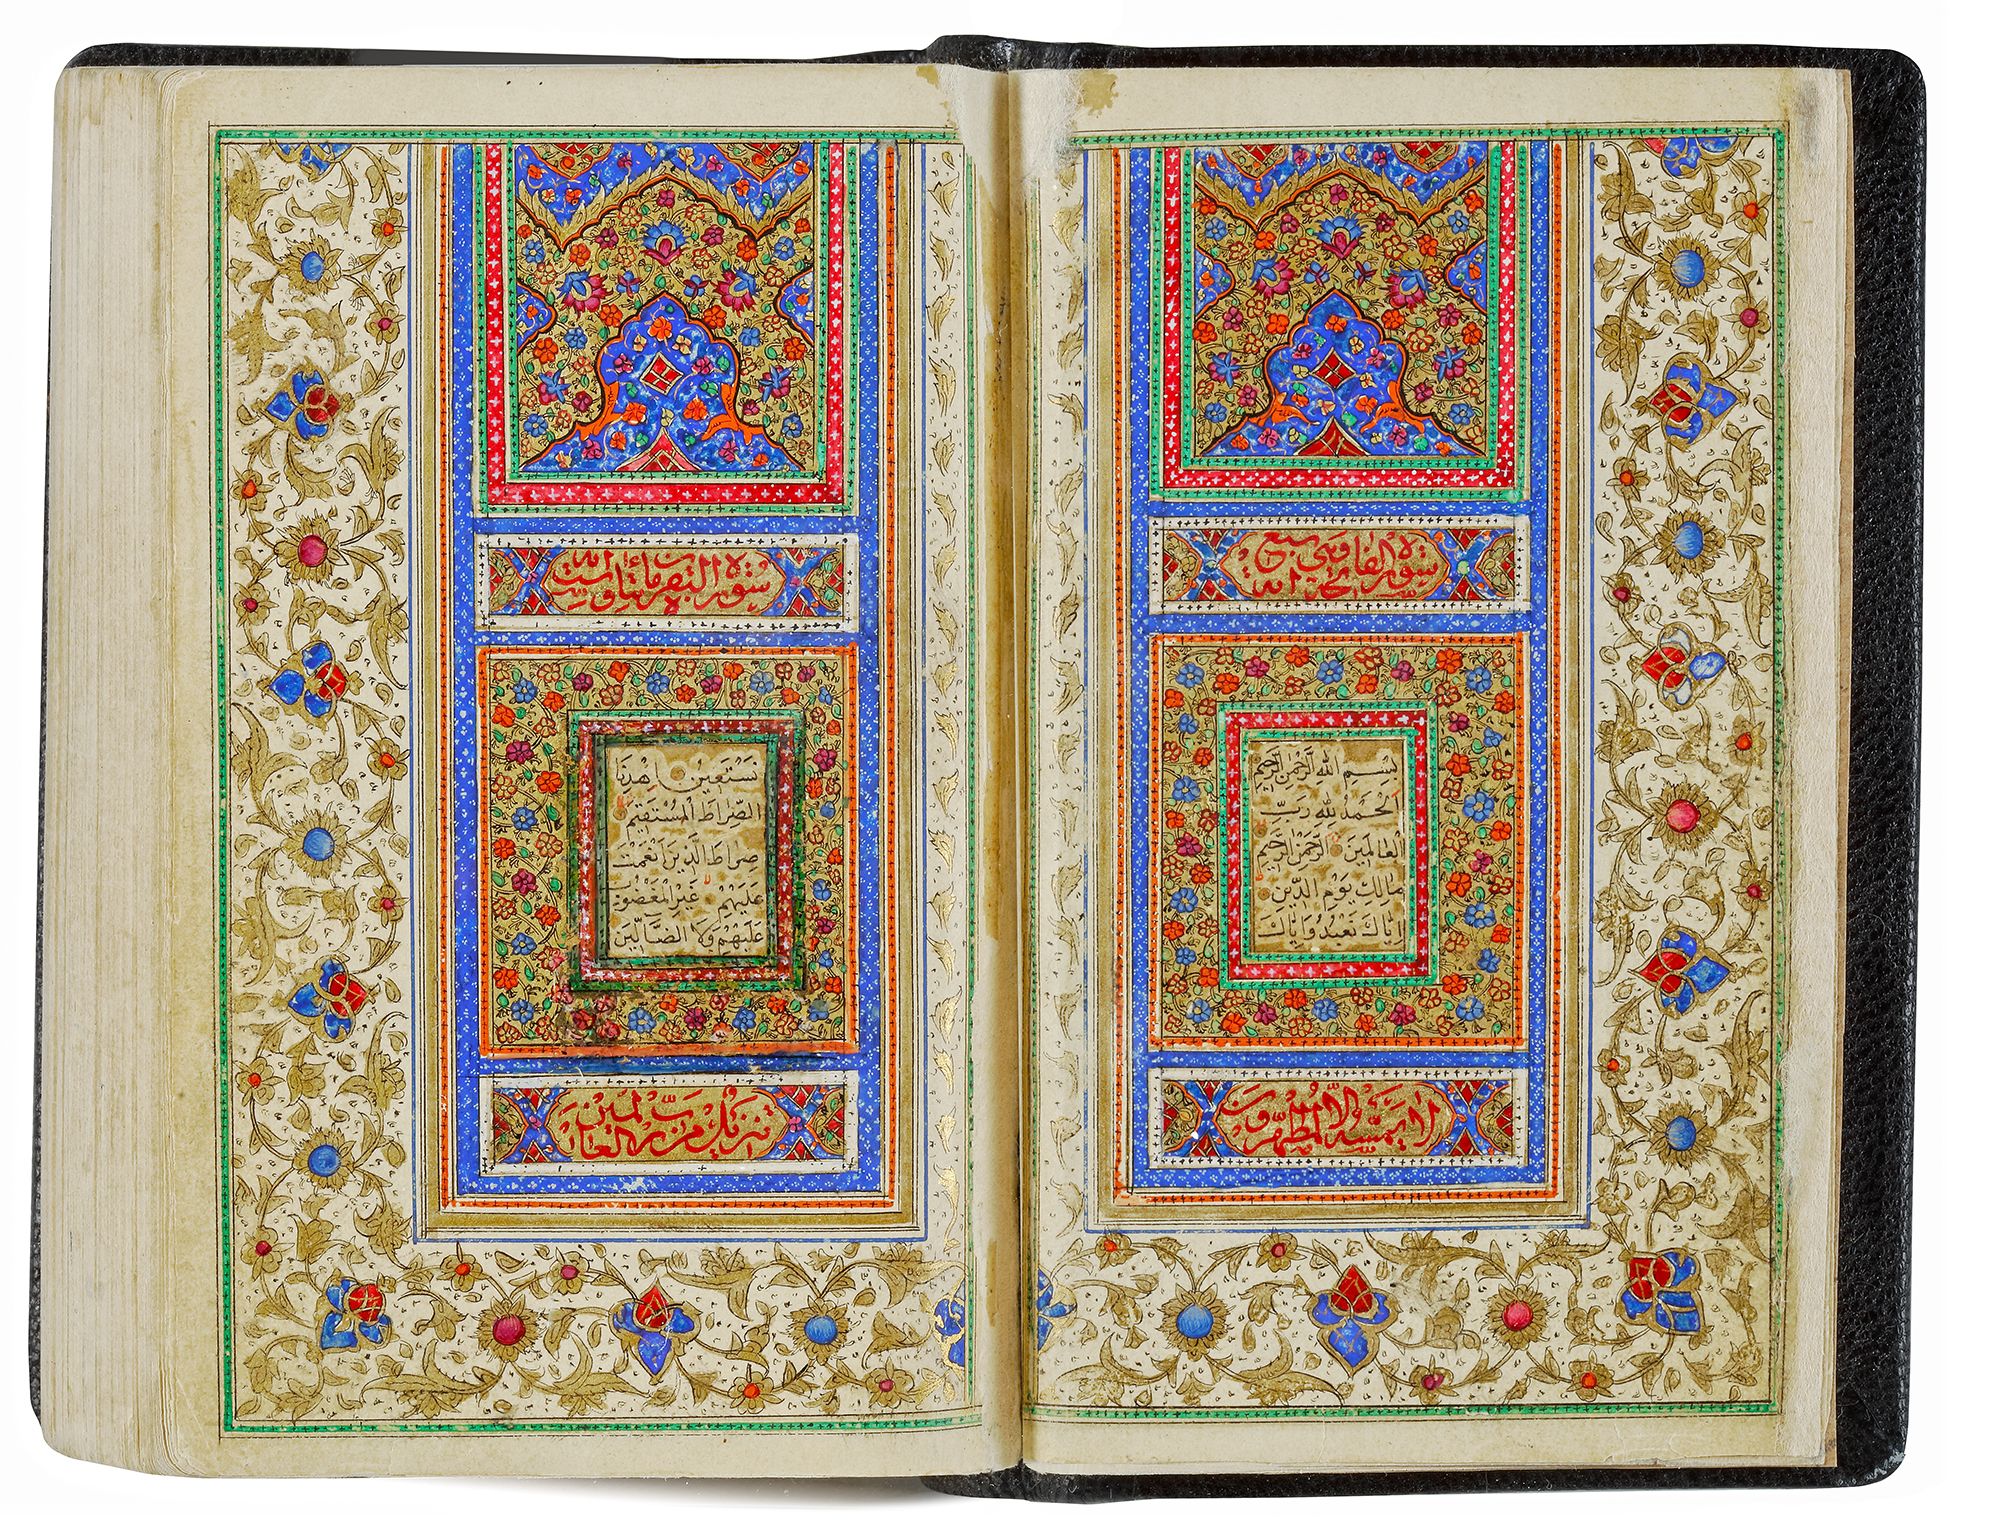 سورة الفا وهي سبع
تحة الله
بِسْمِ اللهِ الرَّحْمٰنِ الرَّحِيمِ
اَلْحَمْدُ لِلّٰهِ رَبِّ
الْعَالَمِينَ الرَّحْمٰنِ الرَّحِيمِ
مَالِكِ يَوْمِ الدِّينِ
اِيَّاكَ نَعْبُدُ وَاِيَّاكَ
لا يمسه الا المطهرون
نَسْتَعِينُ اِهْدِنَا
الصِّرَاطَ الْمُسْتَقِيمَ
صِرَاطَ الَّذِينَ اَنْعَمْتَ
عَلَيْهِمْ غَيْرِ الْمَغْضُوبِ
عَلَيْهِمْ وَلَا الضَّالِّينَ
تنزيل من رب العالمين